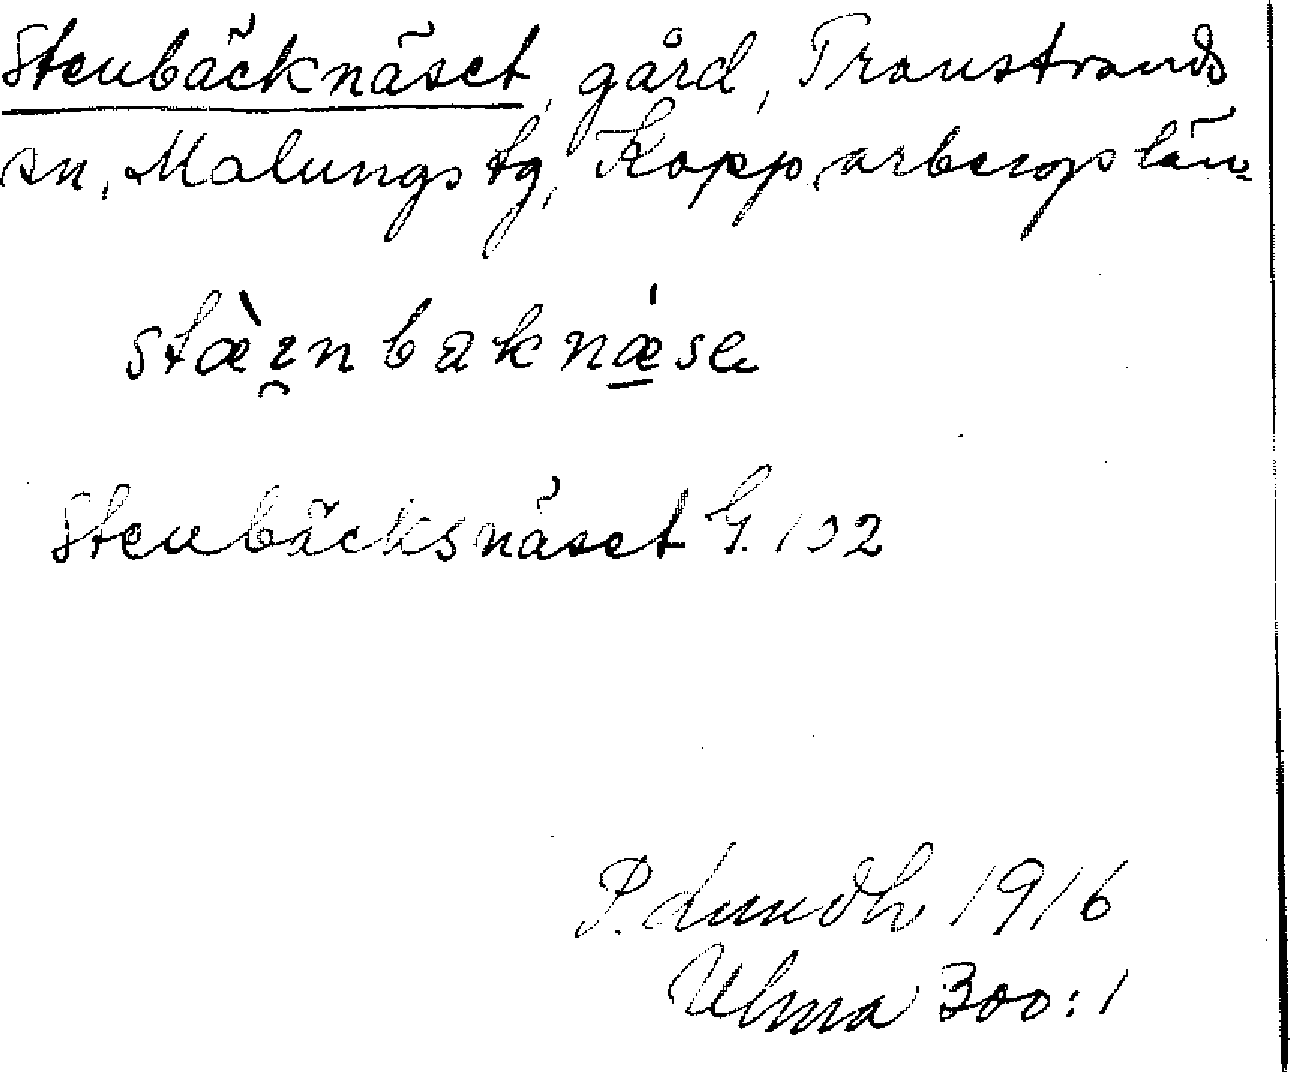 Stenbäcknäset, gård, Transtrands
sn, Malungs tg, Kopparbergs län.
stæ̀ɪ̯nbaknǽ̱se
Stenbäcksnäset G. 102
P. Lundh 1916
Ulma 300:1